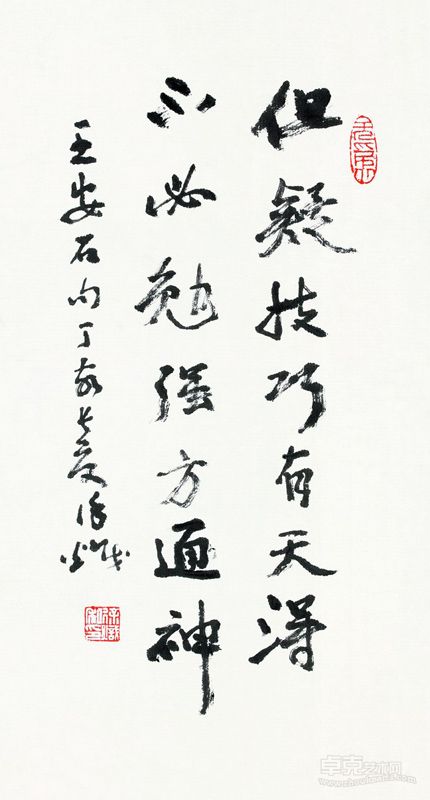 但疑技巧有天得
不必勉强方通神
王安石句丁亥长夏徐炽
卓克艺术网